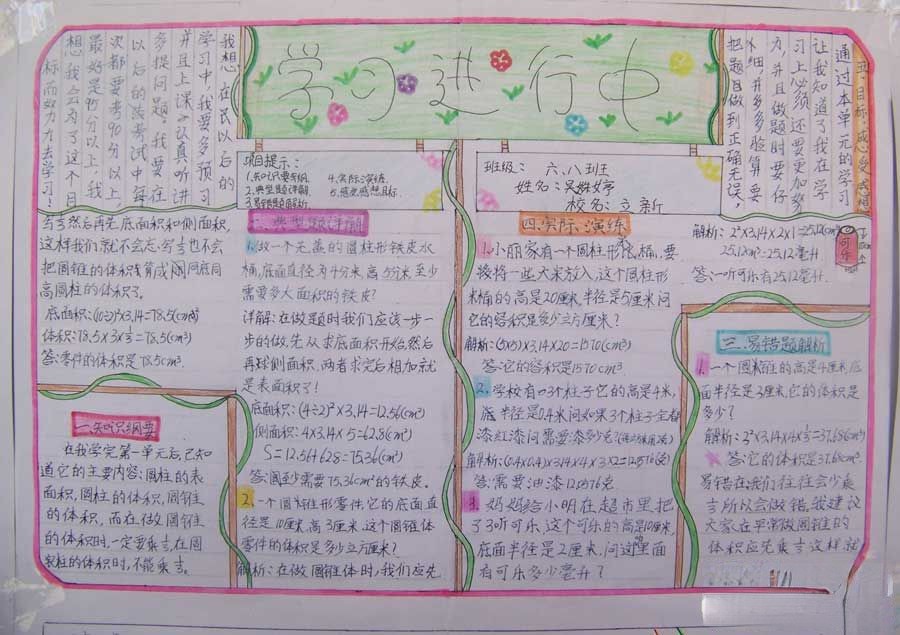 学习进行中
五、目标、感受感想
通过本单元的学习
让我知道了我在学
习上必须还要更加努
力,并且做题时要仔
细,并多多验算要
把题目做到正确无误。
我想,在我以后的
学习中,我要多预习
并且上课认真听讲
多提问题,我要在
以后的考试中每
次都要考90分以上,
最好是95分以上,我
想我会为了这个目
标而努力去学习!
项目提示:
1.知识纲要
2.典型题详解
3.易错题解析
4.实际演练
5.感受感想目标
班级: 六.八班
姓名:吴婷
校名:立新
一.知识纲要
在我学完第一单元后,已知
道它的主要内容:圆柱的表
面积,圆柱的体积,圆锥
的体积,而在做圆锥
的体积时,一定要乘⅓,在圆
柱的体积时,不能乘⅓。
二.典型题详解
1.做一个无盖的圆柱形铁皮水
桶,底面直径为4分米高5分米至少
需要多大面积的铁皮?
详解:在做题时我们应该一步一
步的做,先从求底面积开始,然后
再球侧面积,两者求完后相加就
是表面积了!
底面积:(4÷2)²×3.14=12.56(cm²)
侧面积:4×3.14×5=62.8(cm²)
S=12.56+62.8=75.36(cm²)
答:至少需要75.36cm²的铁皮。
2.一个圆锥形零件,它的底面直
径是10厘米,高3厘米.这个圆锥体
零件的体积是多少立方厘米?
解析:在做圆锥体时,我们应先
写⅓然后再先底面积和侧面积,
这样我们就不会忘写⅓也不会
把圆锥的体积算成同底同
高圆柱的体积了。
底面积:(10÷2)²×3.14=78.5(cm²)
体积:78.5×3×⅓=78.5(cm³)
答:零件的体积是78.5cm³.
三.易错题解析
1.一个圆锥的高是4厘米,底
面半径是3厘米,它的体积是
多少?
解析:3²×3.14×4×⅓=37.68(cm³)
答:它的体积是37.68cm³.
易错在我们往往会少乘
⅓所以会做错,我建议
大家在平常做圆锥的
体积应先乘⅓这样就
四.实际演练
1.小丽家有一个圆柱形米桶,要
接将一些大米放入,这个圆柱形
米桶的高是20厘米,半径是5厘米问
它的容积是多少立方厘米?
解析:(5×5)×3.14×20=1570(cm³)
答:它的容积是1570cm³.
2.学校有3个柱子它的高是4米,
底半径是0.4米问如果3个柱子全部
漆红漆问需要漆多少克?
答:需要油漆120576克.
3.妈妈给小明在超市里,把
了3听可乐,这个可乐的高是10厘米,
底面半径是2厘米,问这里面
有可乐多少毫升?
解析:2²×3.14×2×1=25.12(cm³)
25.12cm³=25.12毫升
答:一听可乐有25.12毫升.
可乐